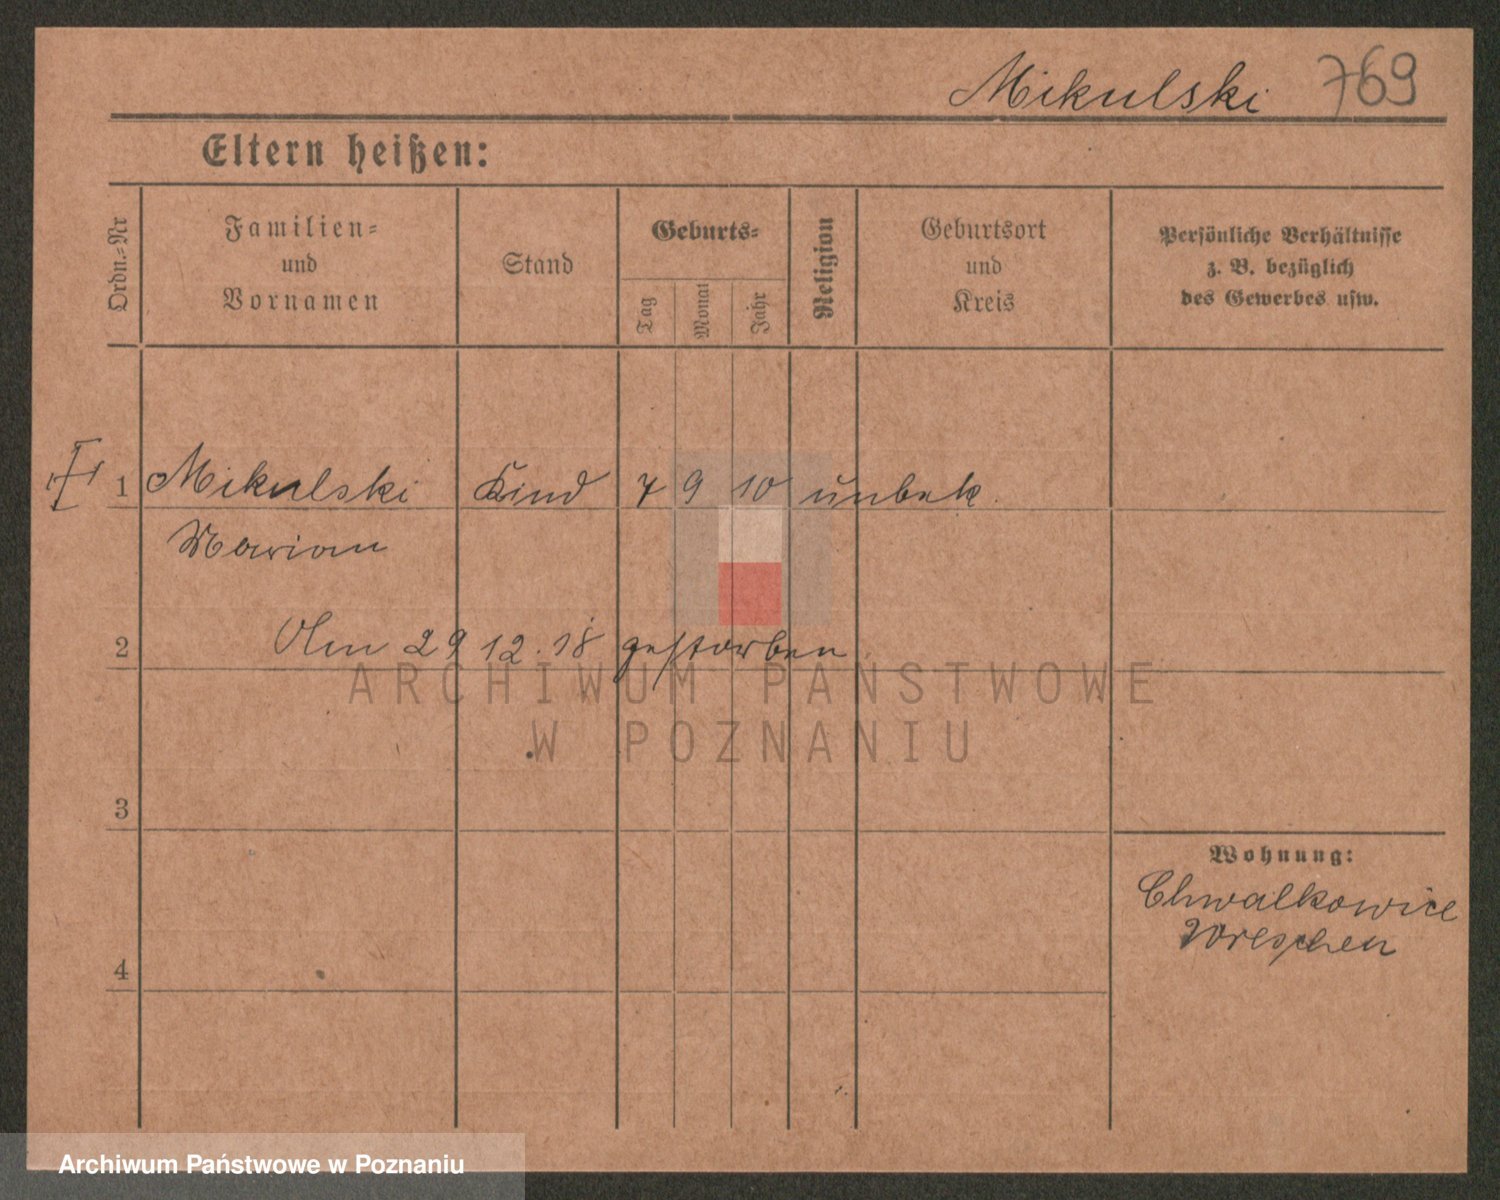 Mikulski 769
Eltern heißen:
Ordn.-Nr
Familien-
und
Vornamen
Stand
Geburts-
Tag
Monat
Jahr
Religion
Geburtsort
und
Kreis
Persönliche Verhältnisse
z. B. bezüglich
des Gewerbes usw.
1 Mikulski Kind 7 9 10 unbek.
Marian
2 Am 29 12. 18 gestorben
ARCHIWUM PAŃSTWOWE
W POZNANIU
3
Wohnung:
Chwalkowice
Wreschen
4
Archiwum Państwowe w Poznaniu